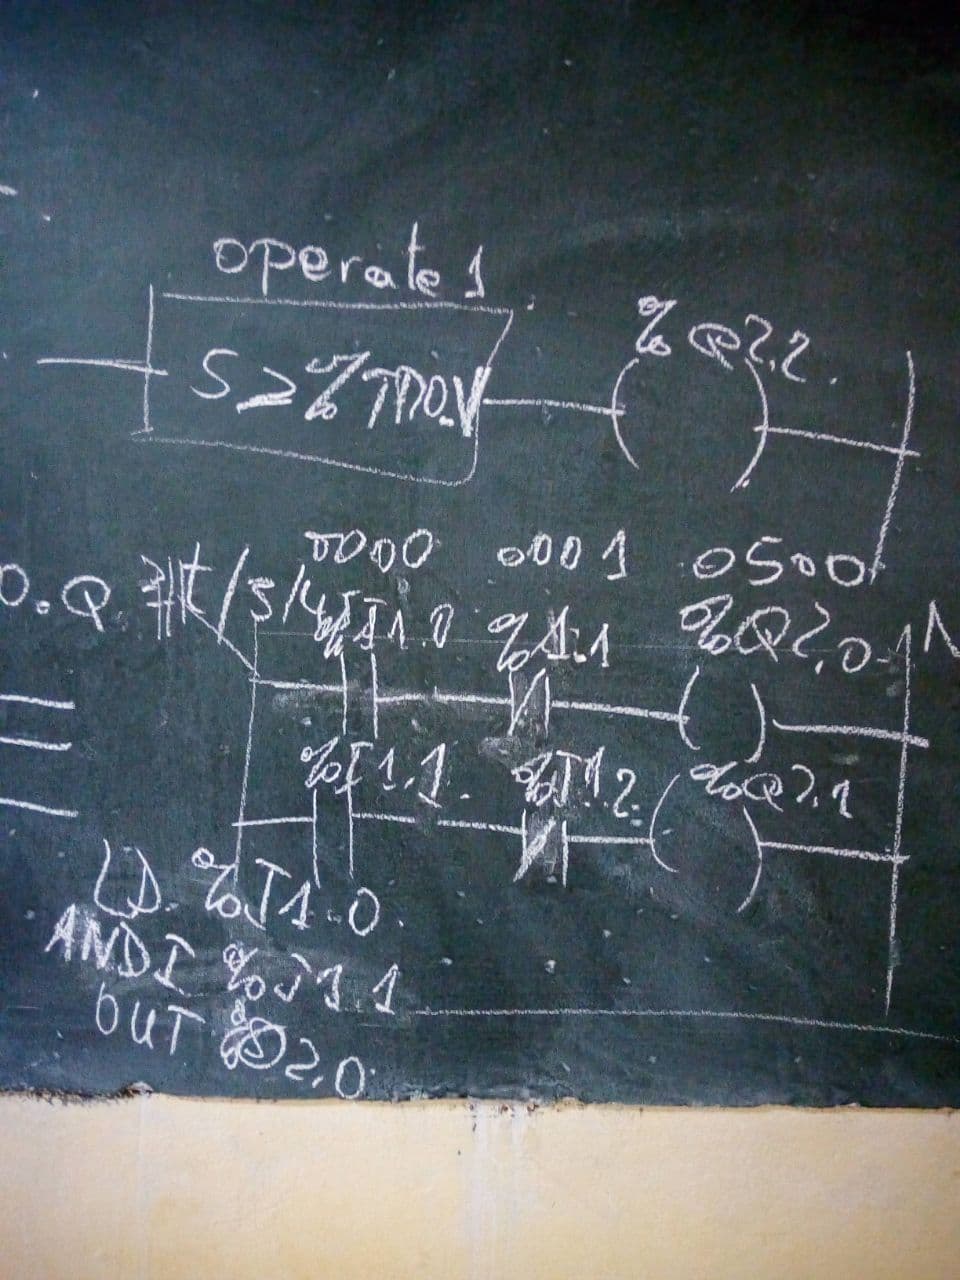 operate 1
S > % TM0.V
% Q2.2.
0000 0001 0500
0.Q /3/4 %I1.0 %I.1 %Q2.0
%I1.1. %I1.2 %Q2.1
LD %I1.0.
ANDI %I1.1
OUT 2.0